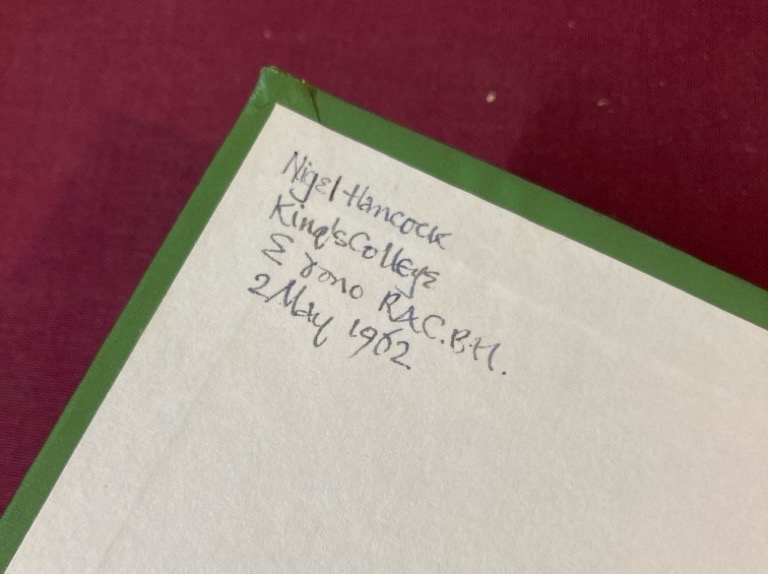 Nigel Hancock
King's College
Σ dono R.A.C.B.H.
2 May 1962